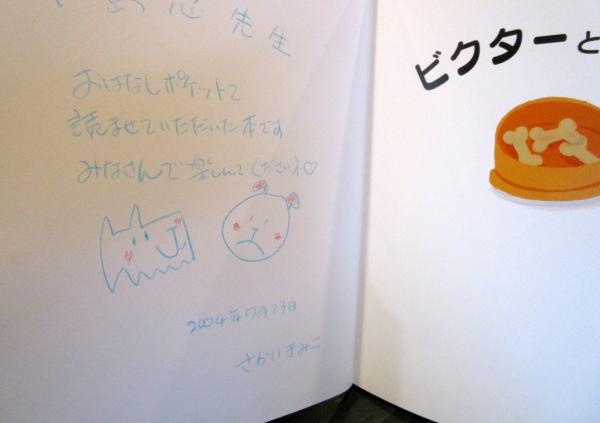 先生
おはなしポケットで
読ませていただいた本です
みなさんで楽しんでくださいネ♡
2004年7月23日
さかいきみこ
ビクターと